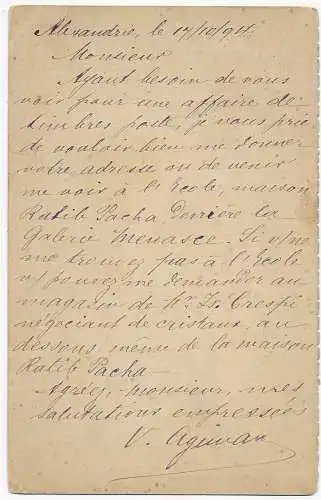 Alexandrie, le 17/10/95
Monsieur
Ayant besoin de vous
voir pour une affaire de
timbres poste, je vous prie
de vouloir bien me donner
votre adresse ou de venir
me voir à l'Ecole, maison
Ratib Pacha Derrière la
Galerie Menasce. Si v/ ne
me trouvez pas à l'Ecole
v/ pouvez me demander au
magazin de Mr. Is. Crespi
négociant de cristaux, au
dessous même de la maison
Ratib Pacha.
Agréez, monsieur, mes
salutations empressées
V.